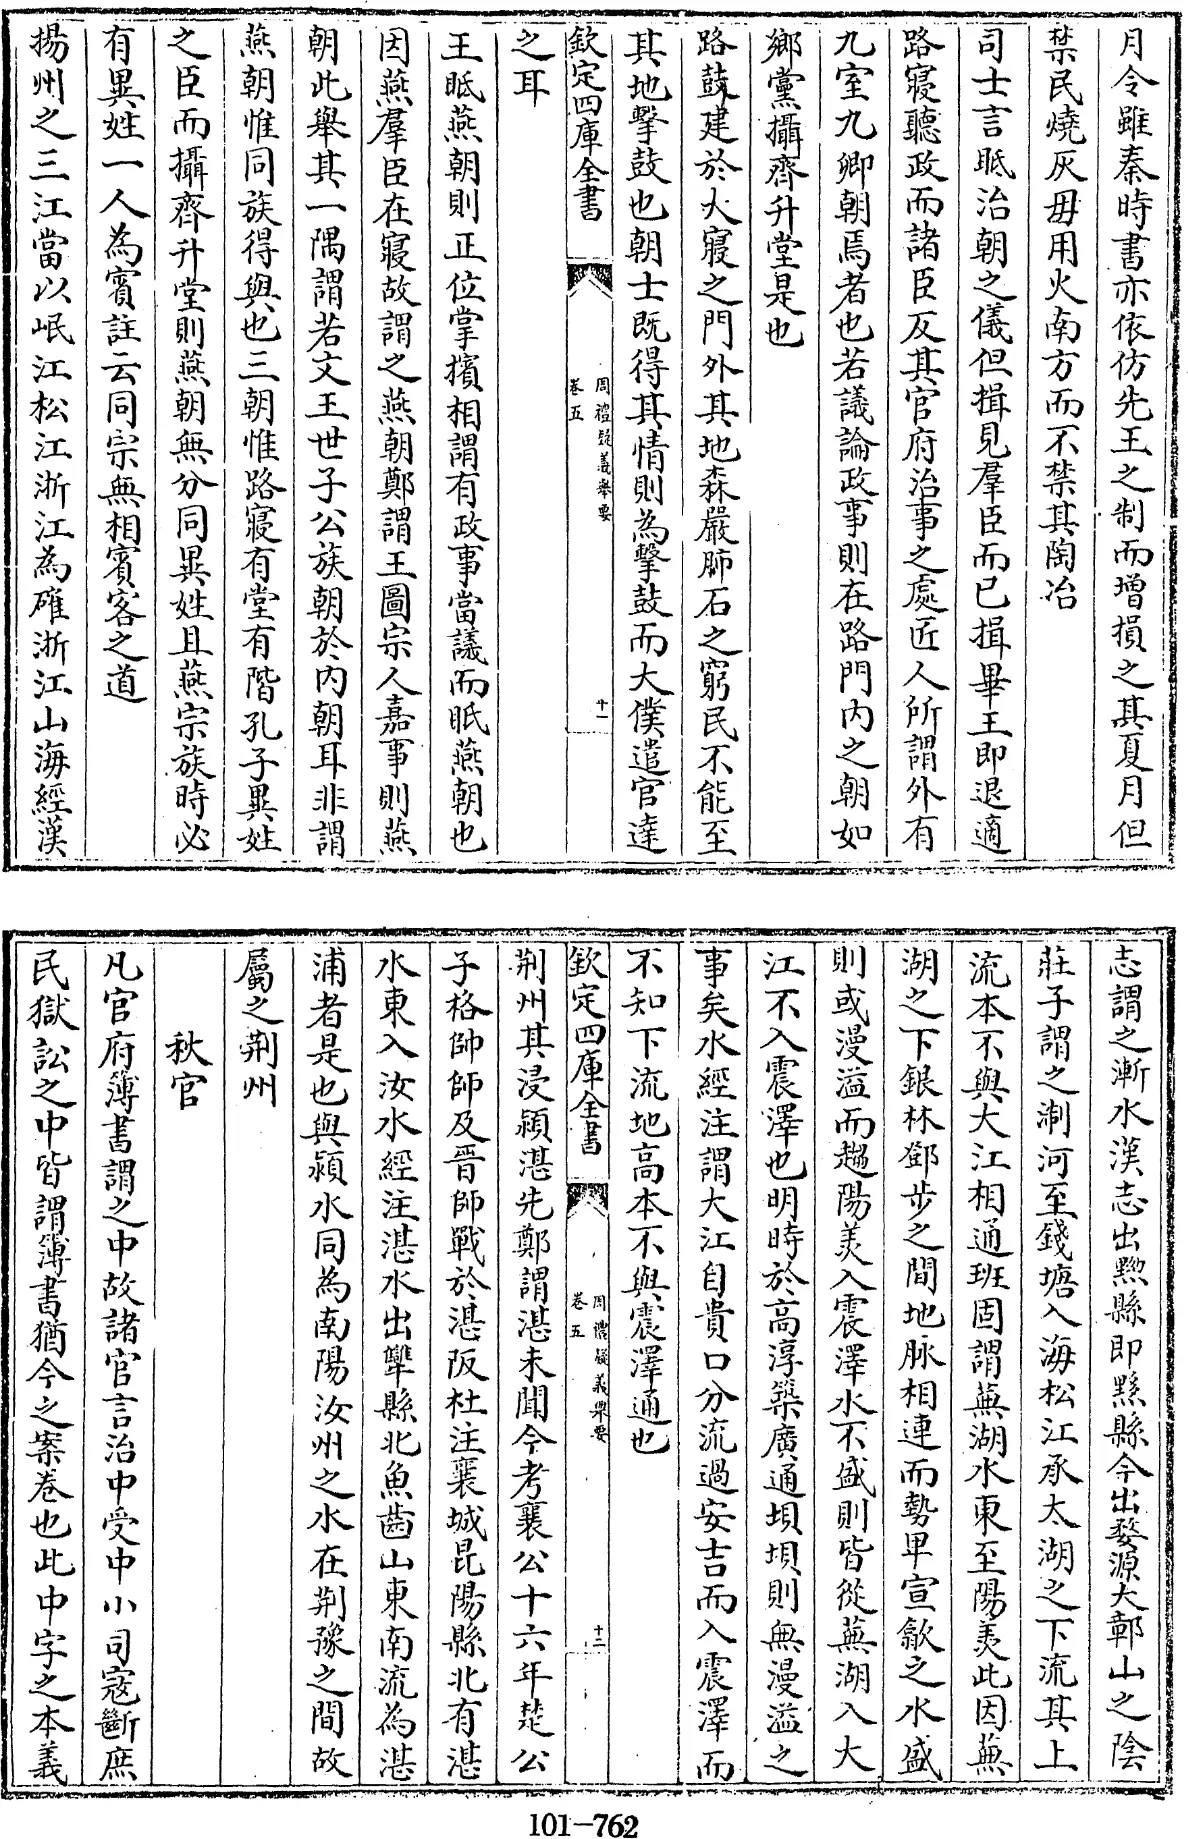 月令雖秦時書亦依仿先王之制而增損之其夏月但
禁民燒灰毋用火南方而不禁其陶冶
司士言眂治朝之儀但揖見羣臣而已揖畢王即退適
路寢聽政而諸臣反其官府治事之處匠人所謂外有
九室九卿朝焉者也若議論政事則在路門內之朝如
鄉黨攝齊升堂是也
路鼓建於大寢之門外其地森嚴肺石之窮民不能至
其地擊鼓也朝士既得其情則為擊鼓而大僕遣官達
欽定四庫全書
周禮疑義舉要
卷五
十一
之耳
王眂燕朝則正位掌擯相謂有政事當議而眂燕朝也
因燕羣臣在寢故謂之燕朝鄭謂王圖宗人嘉事則燕
朝此舉其一隅謂若文王世子公族朝於內朝耳非謂
燕朝惟同族得與也三朝惟路寢有堂有階孔子異姓
之臣而攝齊升堂則燕朝無分同異姓且燕宗族時必
有異姓一人為賓註云同宗無相賓客之道
揚州之三江當以岷江松江浙江為確浙江山海經漢
志謂之漸水漢志出黟縣即黟縣今出婺源大鄣山之陰
莊子謂之淛河至錢塘入海松江承太湖之下流其上
流本不與大江相通班固謂蕪湖水東至陽羨此因蕪
湖之下銀林鄧步之間地脉相連而勢卑宣歙之水盛
則或漫溢而趨陽羨入震澤水不盛則皆從蕪湖入大
江不入震澤也明時於高淳築廣通壩壩則無漫溢之
事矣水經注謂大江自貴口分流過安吉而入震澤而
不知下流地高本不與震澤通也
欽定四庫全書
周禮疑義舉要
卷五
十二
荆州其浸潁湛先鄭謂湛未聞今考襄公十六年楚公
子格帥師及晉師戰於湛阪杜注襄城昆陽縣北有湛
水東入汝水經注湛水出犨縣北魚齒山東南流為湛
浦者是也與潁水同為南陽汝州之水在荆豫之間故
屬之荆州
秋官
凡官府簿書謂之中故諸官言治中受中小司寇斷庶
民獄訟之中皆謂簿書猶今之案卷也此中字之本義
101-762